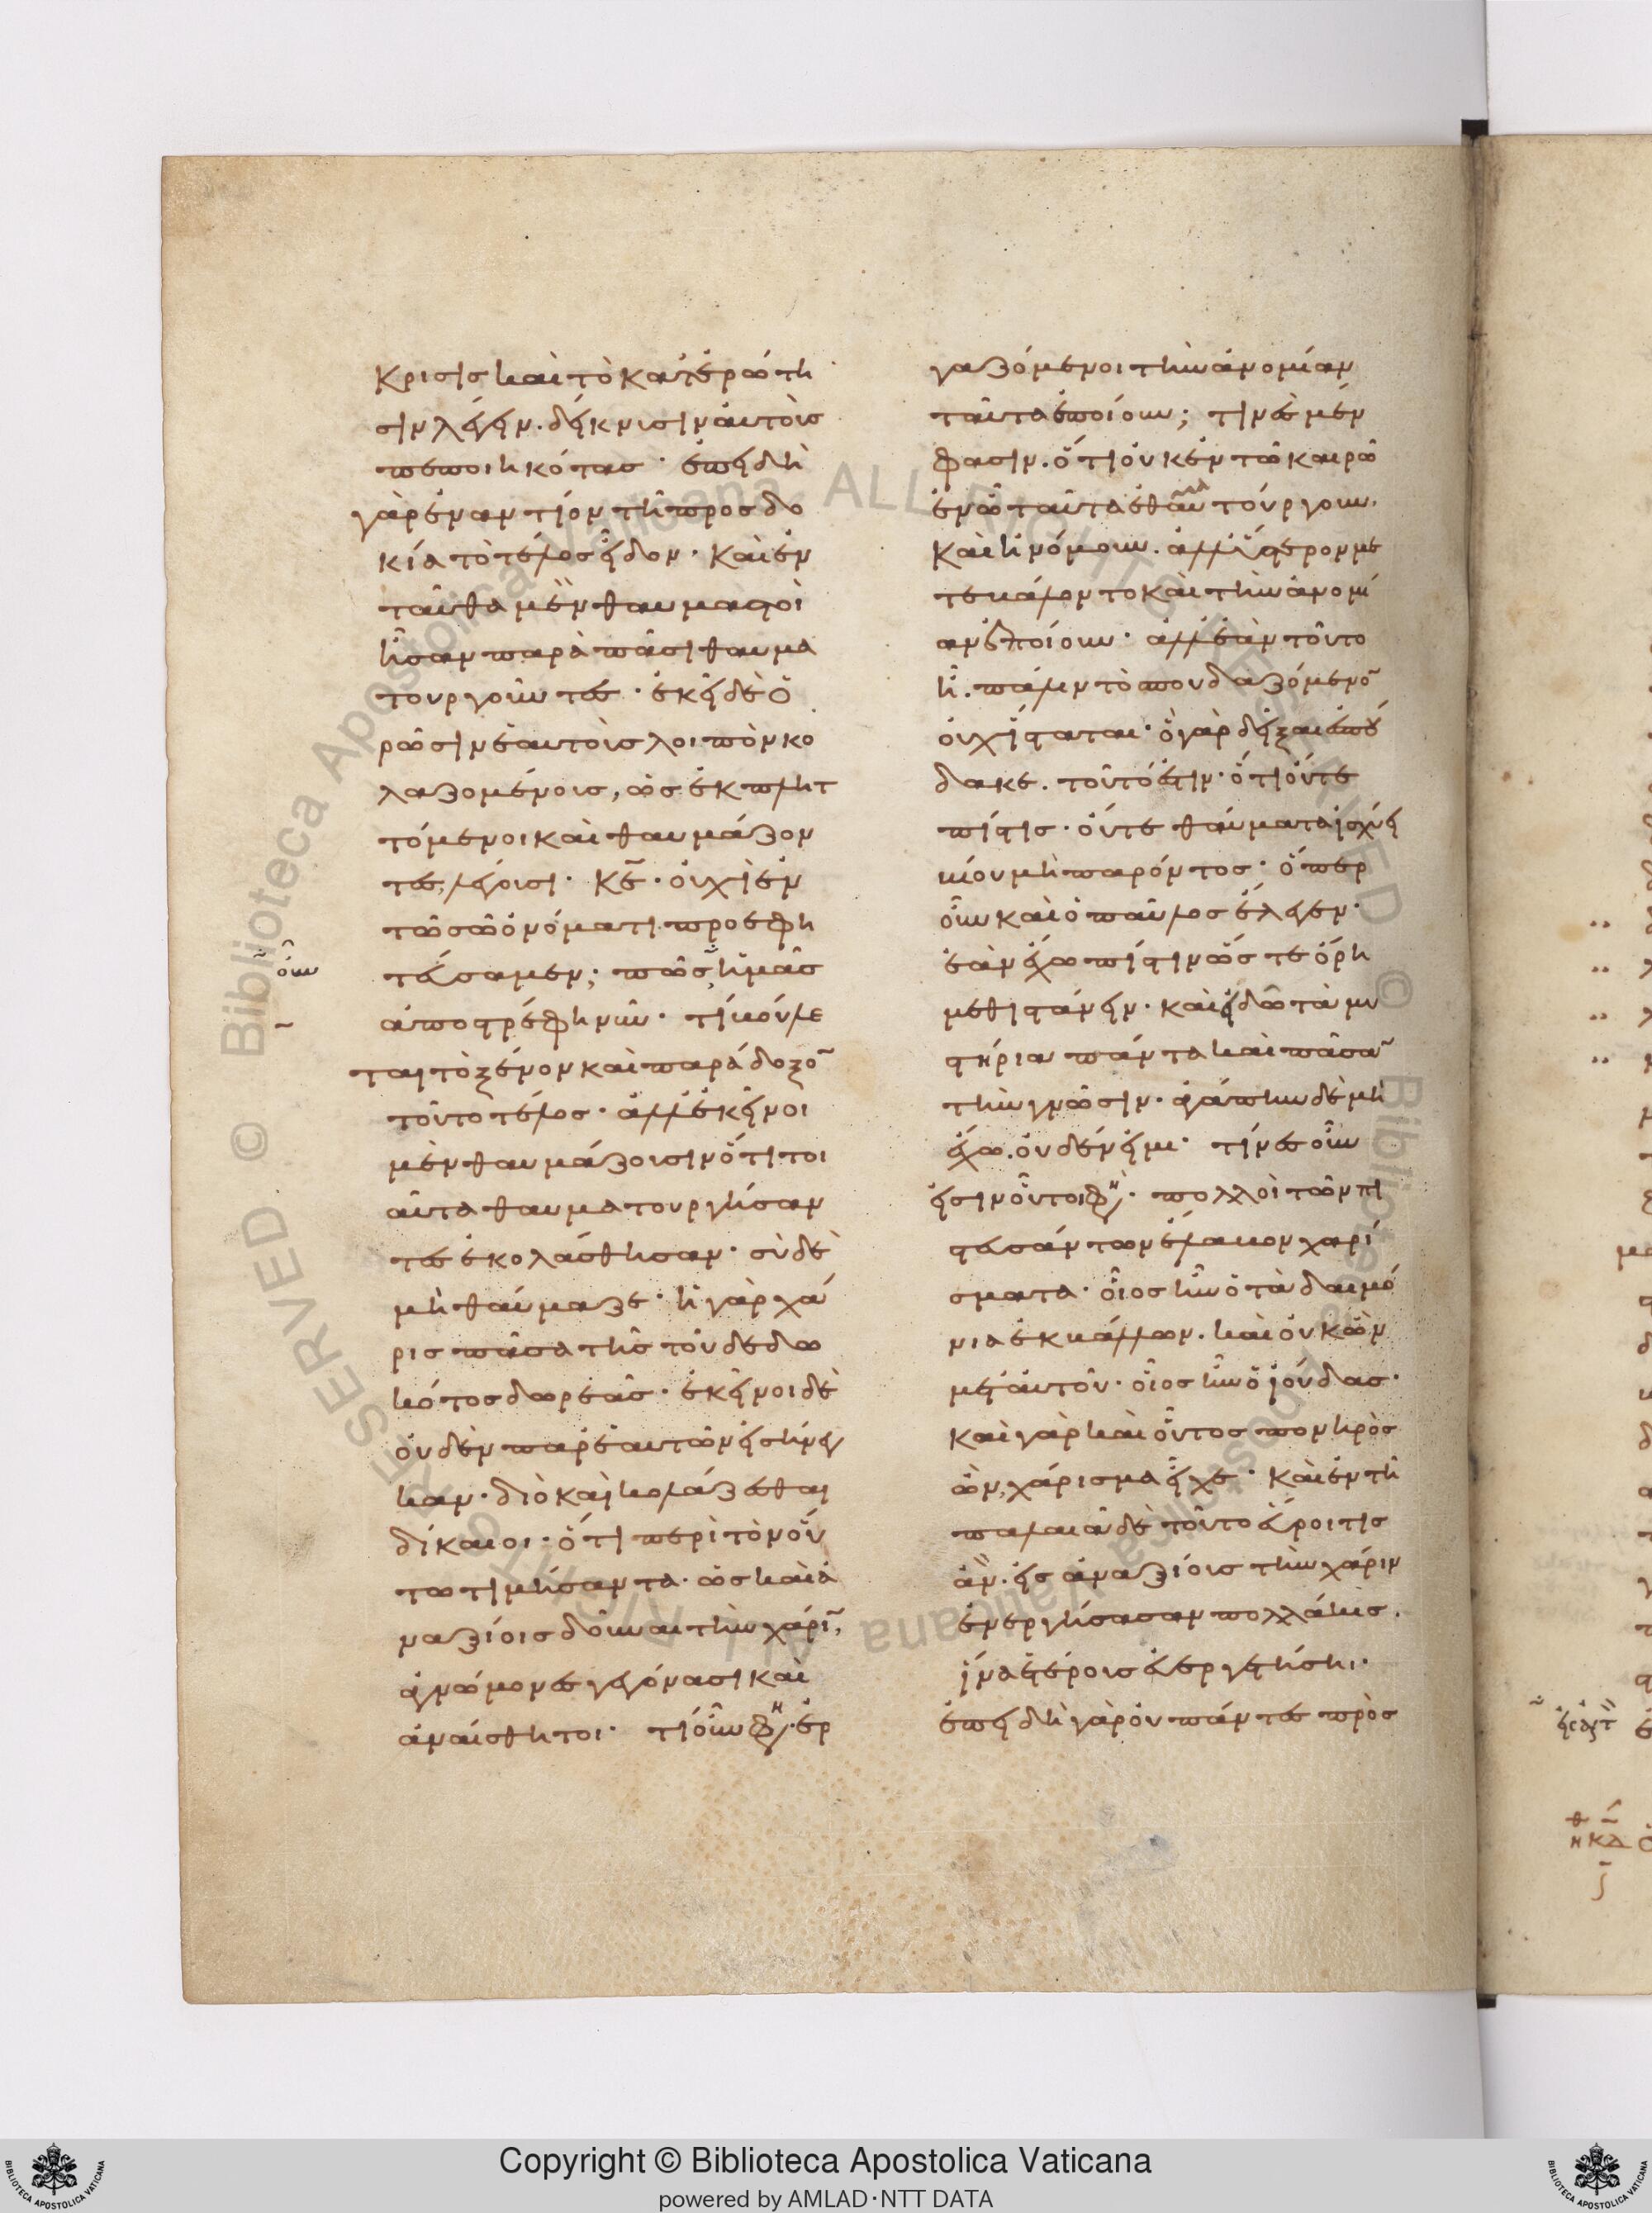 κρισις καὶ τὸ κατ' ἐρώτη
σιν λέγειν. δι' ἀπόκρισιν αὐτοὺς
πεποιηκότας· ἐπειδὴ
γὰρ ἐναντίον τῆ προσδο
κία τὸ τέλος εἶδον· καὶ ἐν
ταῦθα μὲν θαυμαστοὶ
ἦσαν παρὰ πᾶσι θαυμα
τουργοῦντες· ἐκεῖ δὲ ὁ
ρῶσιν ἑαυτοὺς λοιπὸν κο
λαζομένους, ὡς ἐκπλητ
τόμενοι καὶ θαυμάζον
τες, λέγουσι· κε̄· οὐχὶ ἐν
τῶ σῶ ὀνόματι προεφη
τεύσαμεν; πῶς ἡμᾶς
οὖν
ἀποστρέφη νῦν· τί βούλε
ται τὸ ξένον καὶ παράδοξο̄
τοῦτο τέλος· ἀλλ' ἐκεῖνοι
μὲν θαυμάζουσιν ὅτι τοι
αῦτα θαυματουργήσαν
τες ἐκολάσθησαν· σὺ δὲ
μὴ θαύμαζε· ἡ γὰρ χά
ρις πᾶσα τῆς τοῦ δεδω
κότος δωρεᾶς· ἐκεῖνοι δὲ
οὐδὲν παρ' ἑαυτῶν εἰσήνεγ
καν· διὸ καὶ κολάζεσθαι
δίκαιοι· ὅτι περὶ τὸν οὕ
τω τιμήσαντα· ὡς καὶ ἀ
ναξίοις δοῦναι τὴν χάρῑ,
ἀγνώμονες γεγόνασι καὶ
ἀναίσθητοι· τί οὖν φη· ἐρ
γαζόμενοι τὴν ἀνομίαν
ταῦτα ἐποίουν; τινὲς μέν
φασιν. ὅτι οὐκ ἐν τῶ καιρῶ
ἐν ὧ ταῦτα ἐθαυματούργουν·
καὶ ἠνόμουν. ἀλλ' ὕστερον με
τεβάλοντο καὶ τὴν ἀνομί
αν ἐποίουν· ἀλλ' ἐὰν τοῦτο
ἦ. πάλιν τὸ σπουδαζόμενο̄
οὐχ ἵσταται· ὃ γὰρ δεῖξαι ἐσπού
δακε. τοῦτό ἐστιν· ὅτι οὔτε
πίστις· οὔτε θαύματα ἰσχύει
βίου μὴ παρόντος· ὅπερ
οὖν καὶ ὁ παῦλος ἔλεγεν·
ἐὰν ἔχω πίστιν ὥστε ὄρη
μεθιστάνειν· καὶ εἰδῶ τὰ μυ
στήρια πάντα καὶ πᾶσᾱ
τὴν γνῶσιν· ἀγάπην δὲ μὴ
ἔχω. οὐδέν εἰμι· τίνες οὖν
εἰσιν οὗτοι φη· πολλοὶ τῶν πι
στευσάντων ἔλαβον χαρί
σματα· οἷος ἦν ὁ τὰ δαιμό
νια ἐκβάλλων. καὶ οὐκ ὢν
μετ' αὐτοῦ· οἷος ἦν ὁ ἰούδας·
καὶ γὰρ καὶ οὗτος πονηρὸς
ὤν, χάρισμα εἶχε· καὶ ἐν τῆ
παλαιᾶ δὲ τοῦτο εὕροι τις
ἄν· εἰς ἀναξίους τὴν χάριν
ἐνεργήσασαν πολλάκις.
ἵνα ἑτέρους εὐεργετήση·
ἐπειδὴ γὰρ οὐ πάντες πρὸς
Copyright © Biblioteca Apostolica Vaticana
powered by AMLAD·NTT DATA